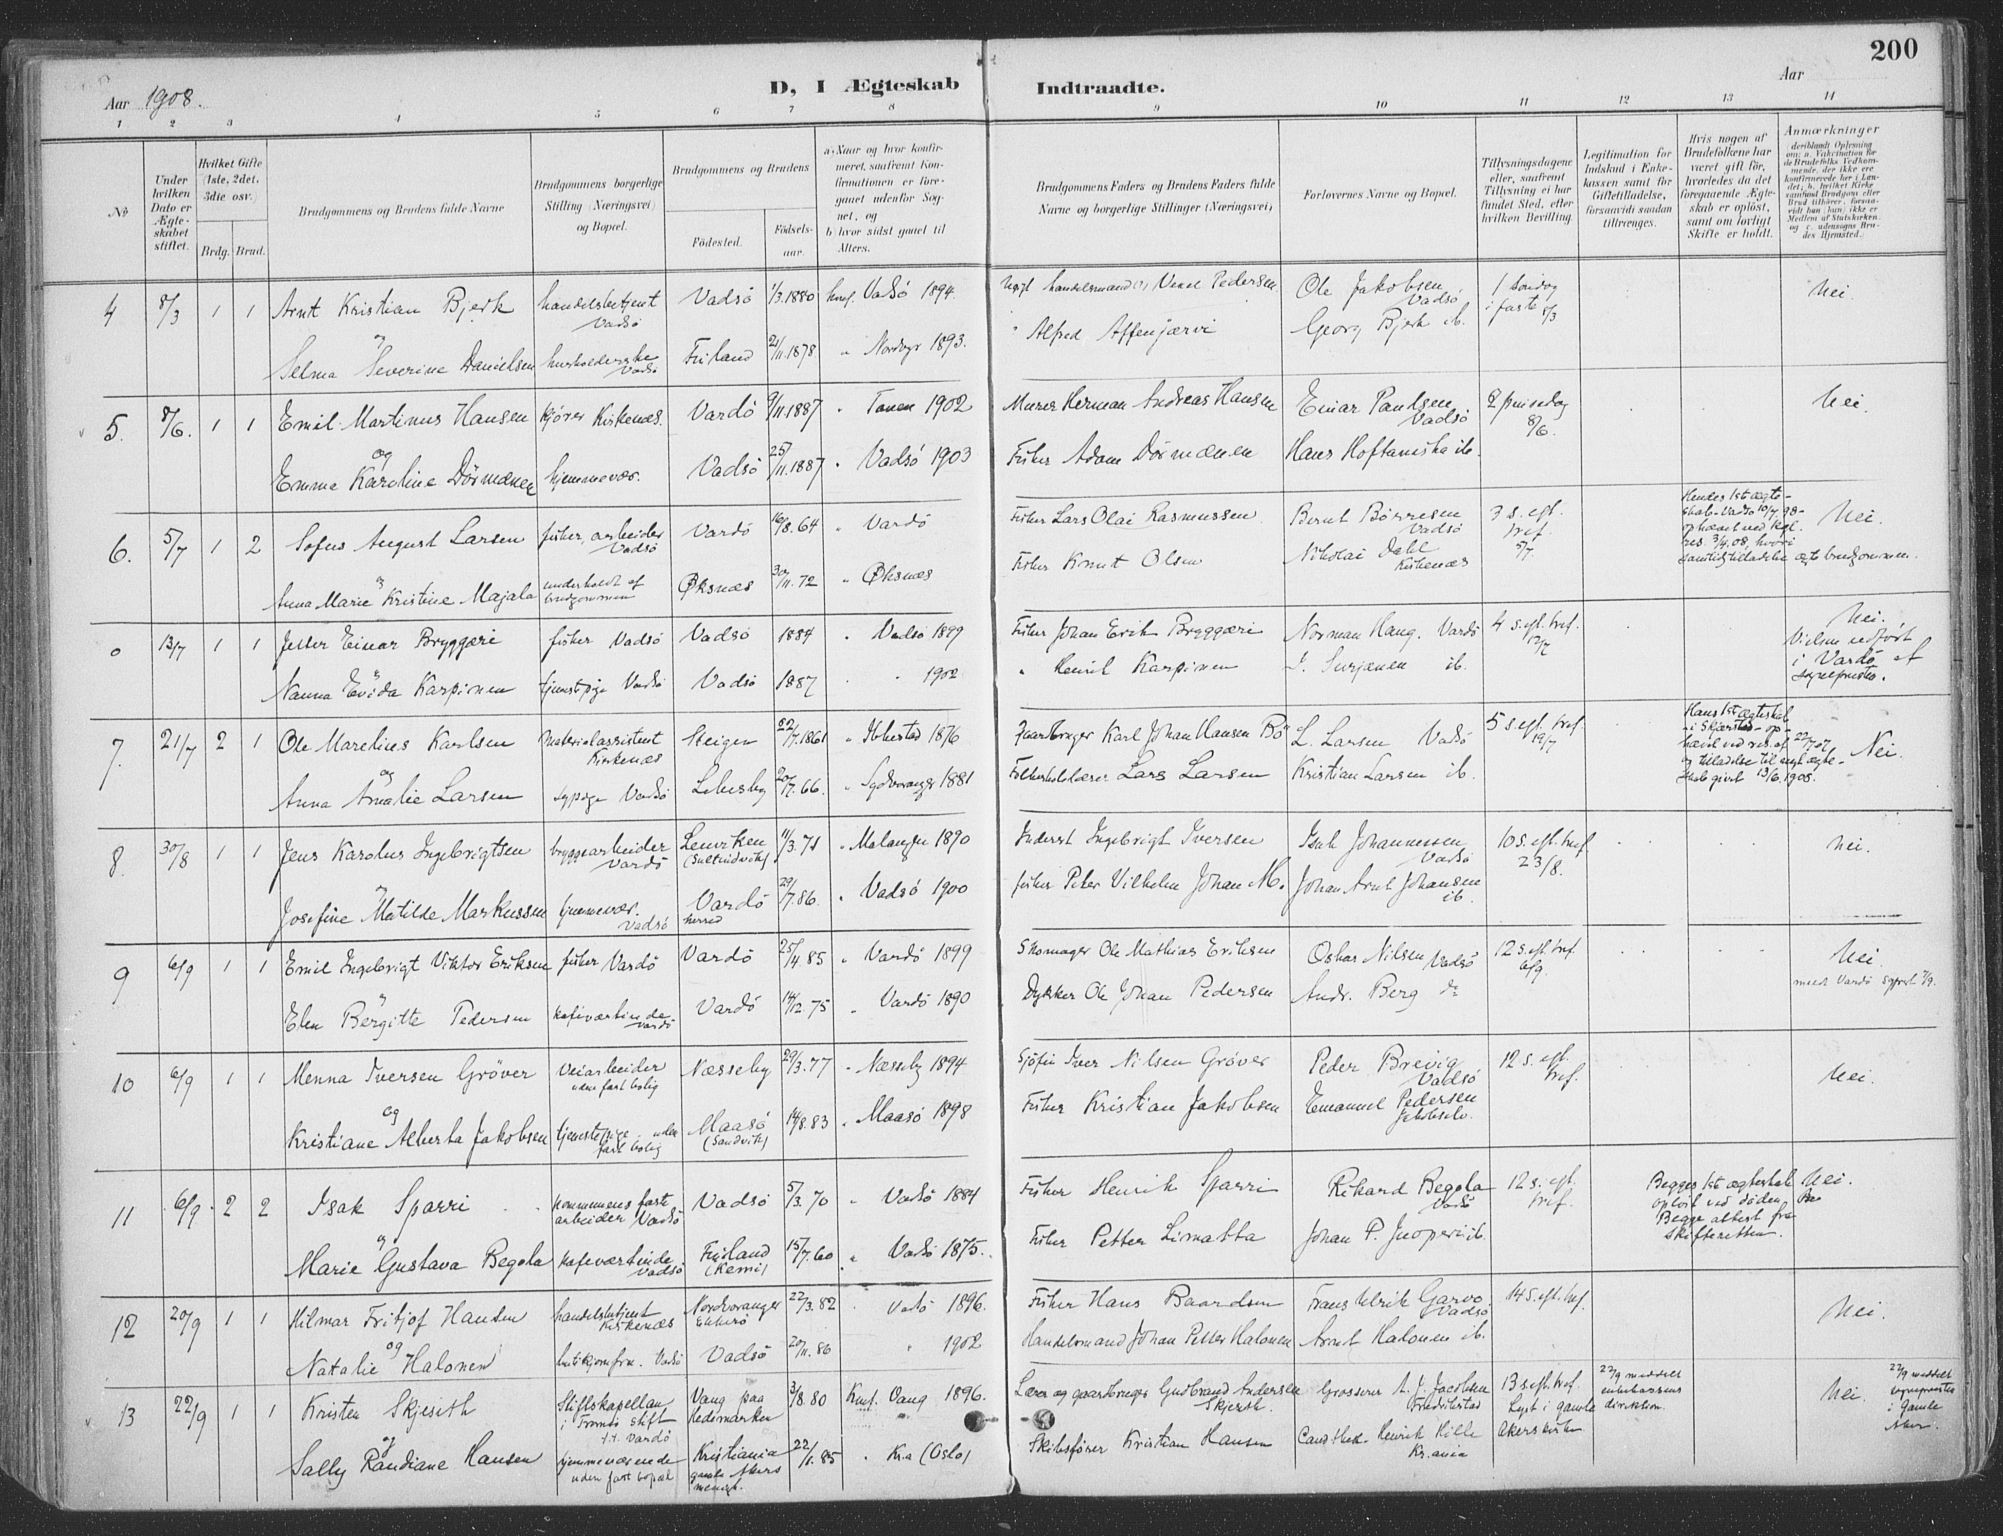 200
Aar 1908.
D, I Ægteskab Indtraadte.
Aar
1 2 3 4 5 6 7 8 9 10 11 12 13 14
No
Under hvilken Dato er Ægteskabet stiftet.
Hvilket Gifte (1ste, 2det, 3die osv.)
Brdg. Brud.
Brudgommens og Brudens fulde Navne
Brudgommens borgerlige Stilling (Næringsvei) og Bopæl.
Brudgommens og Brudens
Fødested.
Fødselsaar.
a. Naar og hvor konfirmeret, saafremt Konfirmationen er foregaaet udenfor Sognet, og
b. hvor sidst gaaet til Alters.
Brudgommens Faders og Brudens Faders fulde Navne og borgerlige Stillinger (Næringsvei)
Forlovernes Navne og Bopæl.
Tillysningsdagene eller, saafremt Tillysning ei har fundet Sted, efter hvilken Bevilling.
Legitimation for Indskud i Enkekassen samt for Giftetilladelse, forsaavidt saadan tiltrænges.
Hvis nogen af Brudefolkene har været gift før, hvorledes da det foregaaende Ægteskab er opløst, samt om lovligt Skifte er holdt.
Anmærkninger
4 8/3 1 1 Arnt Kristian Bjerk handelsbetjent Vadsö Vadsö 1/3.1880 konf. Vadsö 1894. handelsmand Pedersen Ole Jakobsen Vadsö 1 söndag i faste 8/3 Nei.
og
Selma Severine Danielsen husholderske Vadsö Finland 21/11.1878 " 1893. " Alfred Georg Bjerk ib.
5. 8/6. 1 1 Emil Martinus Hansen kjörer Kirkenæs. Vardö 9/11.1887 " Tanen 1902 Murer Herman Andreas Hansen Einar Paulsen Vadsö 2 pinsedag 8/6. Nei.
og
Emma Karoline Dörmænen hjemmevær. Vadsö 25/11.1887 " Vadsö 1903 Fisker Adam Dörmænen Hans ib.
6. 5/7 1 2 Sofus August Larsen fisker, arbeider Vadsö Vardö 16/8.64 " Vardö Fisker Lars Olai Rasmussen Bernt Börresen Vadsö 3 s. eft. tref. 5/7 Hendes 1st ægteskab Vadsö 10/7 98 ophævet ved kgl. res. 3/4.08, hvori samtidig tilladelse brudgommen. Nei.
og
Anna Marie Kristine Majala underholdt af brudgommen Øksnæs 30/11.72 " Øksnæs Fisker Knut Olsen Nikolai Dahl Kirkenæs
0 13/7 1 1 Jesper Einar Bryggæri fisker Vadsö Vadsö 1884 " Vadsö 1899 Fisker Johan Erik Bryggæri Norman Haug. Vardö 4 s. eft. tref. 12/7 Nei. Vielsen udfört i Vardö af sogneprest.
og
Nanna Evida Karpinen tjenestpige Vadsö Vadsö 1887 " " 1902 " Henrik Karpinen ib.
7. 21/7 2 1 Ole Marelius Karlsen Materialassistent Kirkenæs Steigen 22/7.1861 " Ibbestad 1876 Gaardbruger Karl Johan Hansen Bö L. Larsen Vadsö 5 s. eft. tref. 19/7 Hans 1st ægteskab i Skjerstad ophævet ved res. af 22/7.07 og tilladelse til nyt ægteskab givet 13/6.1908. Nei.
og
Anna Amalie Larsen sypige Vadsö Lebesby 20/7.66. " Sydvaranger 1881 Lars Larsen Kristian Larsen ib.
8. 30/8 1 1 Jens Karolus Ingebrigtsen bryggearbeider Vardö Lenviken 11/3.71 " Malangen 1890 Inderst Ingebrigt Iversen Isak Johannessen Vadsö 10 s. eft. tref. 23/8. Nei.
og
Josefine Matilde Markussen hjemmevær. Vadsö Vardö herred 29/7.86. " Vadsö 1900 fisker Peter Vilhelm Johan M. Johan Arnt Johansen ib.
9 6/9 1 1 Emil Ingebrigt Viktor Eriksen fisker Vardö Vardö 25/4 85 " Vardö 1899 Skomager Ole Mathias Eriksen Oskar Nilsen Vadsö 12 s. eft. tref. 6/9 Nei
og
Elen Bergitte Pedersen kafeværtinde Vardö Vardö 14/12.75 " Vardö 1890 Dykker Ole Johan Pedersen Andr. Berg do
10 6/9 1 1 Menna Iversen Gröver Veiarbeider uden fast bolig Næsseby 29/3.77 " Næsseby 1894 Iver Nilsen Gröver Peder Brevig Vadsö 12 s. eft. tref. Nei.
og
Kristiane Alberta Jakobsen tjenestepige uden fast bolig Maasö (Sandvik) 14/8.83 " Maasö 1898 Fisker Kristian Jakobsen Emanuel Pedersen Jakobselv.
11 6/9. 2 2 Isak Sparri kommunens fast arbeider Vadsö Vadsö 5/3.70 " Vadsö 1884 Fisker Henrik Sparri Rikard Begola Vadsö 12 s. eft. tref. Begges 1st ægteskab oplöst ved döden. Begge attest fra Skifteretten. Nei.
og
Marie Gustava Begola kafeværtinde Vadsö Finland (Kemi) 15/7.60 " Vadsö 1875. Fisker Petter Johan P. ib.
12 20/9 1 1 Hilmar Fritjof Hansen handelsbetjent Kirkenæs Nordvaranger Ekkerö 22/3.82 " Vadsö 1896. Fisker Hans Baardsen Frans Ulrik Garvo Vadsö 14 s. eft. tref. Nei.
og
Natalie Halonen Vadsö Vadsö 20/11.86 " 1902 Handelsmand Johan Petter Halonen Arnt Halonen ib.
13 22/9 1 1 Kristen Skjeseth Stiftskapellan i Tromsö stift f.t. Vardö Vang paa Hedemarken 3/8.80 Konf. Vang 1896. Lærer og gaardbruger Gudbrand Andersen Skjeseth Grosserer A. J. Jacobsen Fredrikstad 13 s. eft. tref. Lyst i gamle Akers kirke 22/9 meddelt enkekassens direktion. Nei. 22/9 meddelt sogneprest i gamle Aker.
og
Sally Randiane Hansen hjemmeværende uden fast bopæl Kristiania gamle Akers menigh. 22/1.85 " Kr.a (Oslo) Skibsförer Kristian Hansen Henrik Hille Kr.ania